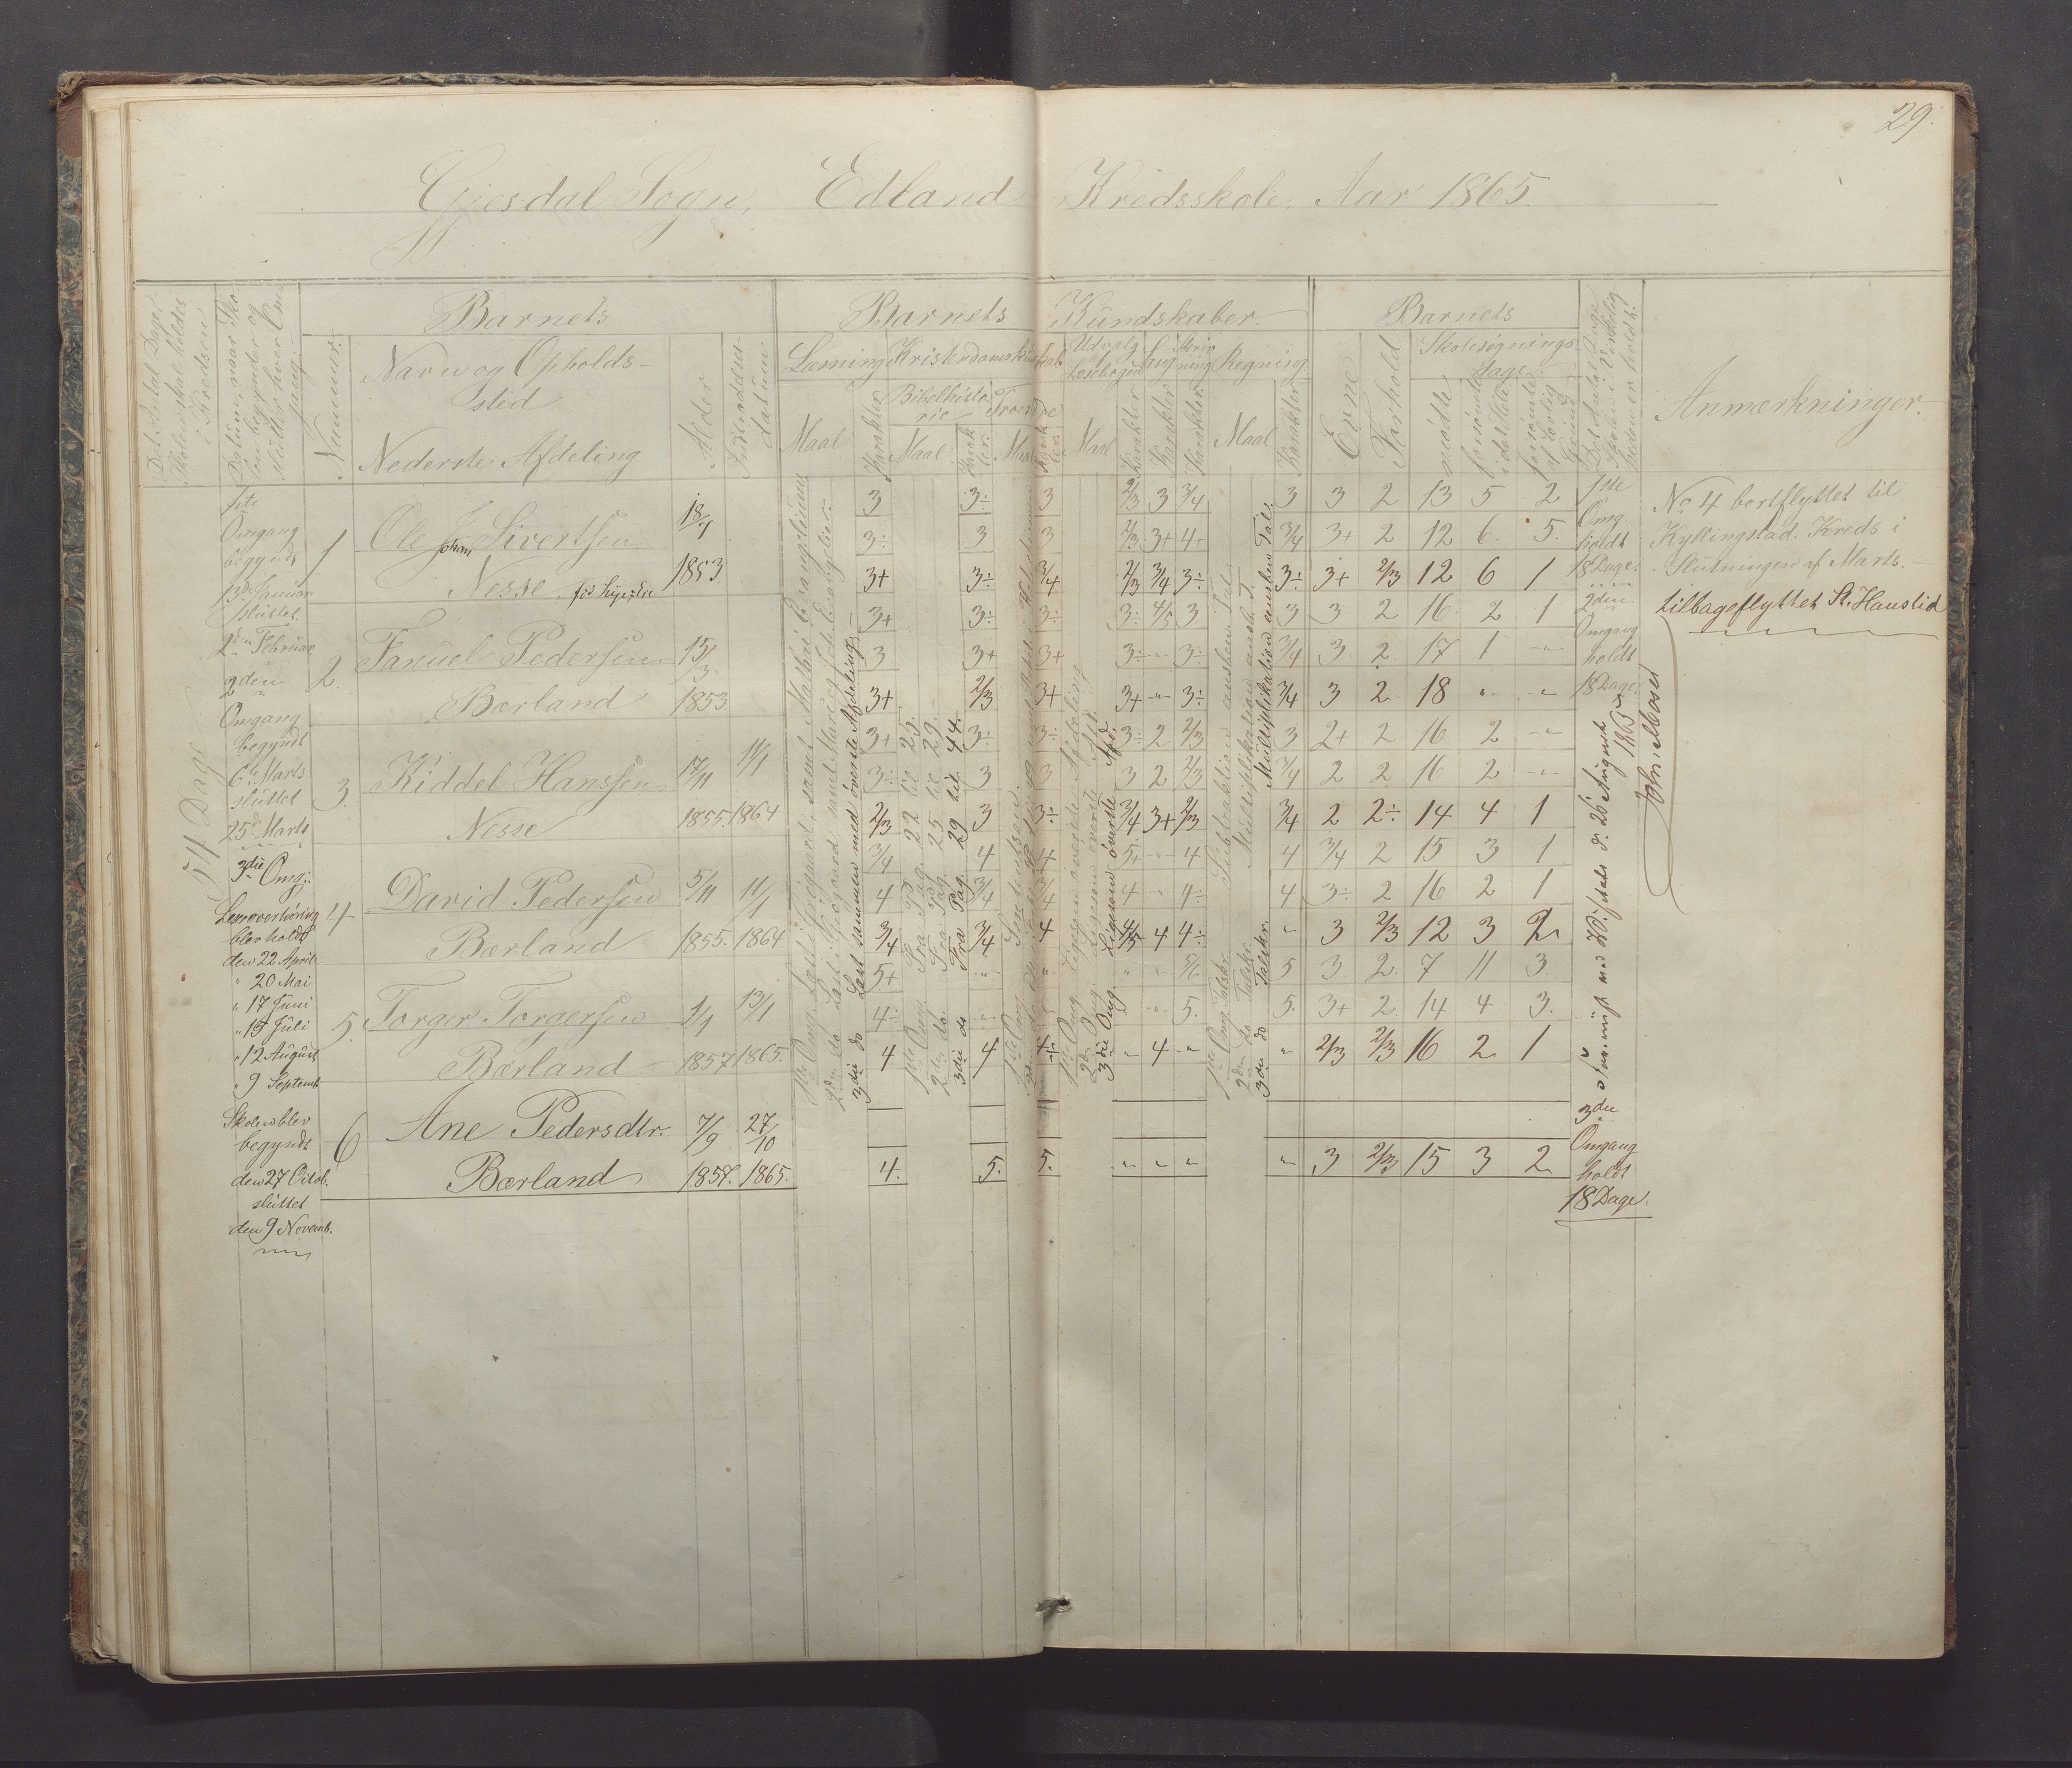 29.
Gjesdal Sogn, Edland Kredsskole, Aar 1865.
Det Antal Dage, Skolen skal holdes i Kredsen
Datum, naar Skolen begynder og slutter hver Omgang.
Barnets
Nummer.
Navn og Opholds-
sted
Nederste Afdeling
Alder
Indtrædelses-
datum.
Barnets Kundskaber.
Læsning
Maal
Karakter
Kristendomskundskab
Bibelhistorie
Maal
Karakter.
Troeslære
Maal
Karakter
Udvalg af Læsebogen
Maal
Karakter
Sang
Karakter
Skrivning
Karakter
Regning
Maal
Karakter
Barnets
Evne
Forhold
Skolesøgnings-
dage.
mødte
forsømte i det Hele
forsømte af lovlig Grund
Det Antal Dage Skolen i Virkelig-
heden er holdt.
Anmærkninger.
54 Dage
1ste
Omgang
begyndt
13de Januar
sluttet
2den Februar
2den
Omgang
begyndt
6te Marts
sluttet
25de Marts
3die Omg:
Lexeoverhøring
blev holdt
den 22 April
" 20 Mai
" 17 Juni
" 15 Juli
" 12 August
" 9 Septemb.
Skolen blev
begyndt
den 27 Octob.
sluttet
den 9 Novemb.
1 Ole Johan Sivertsen 18/4
Nesse 1853.
2. Fanuel Pedersen 15/3
Bærland 1853
3. Kiddel Hanssen 17/11 11/1
Nesse 1855. 1864
4 David Pedersen 5/11 11/1
Bærland 1855. 1864
5. Torger Torgersen 1/1 13/1
Bærland 1857 1865.
6 Ane Pedersdtr. 7/9 27/10
Bærland 1857. 1865.
3die do Læst sammen med øverste Afdeling.
1ste Omg. Fra Pag. 22 til 25.
2den do. Fra Pag. 25 til 29.
3die do Fra Pag. 29 til 44.
1ste Omg. Ligesom øverste Afdeling
2den Omg. Ligesom øverste Afd.
3die Omg. Ligesom øverste Afd.
1ste Omg. Talskr. Subtraktion uensben. Tal.
2den do. Talskr. Multiplikation uensb. T.
3die do Talskr. Multiplikation uensben Tal.
3 3÷ 3 2/3 3 3/4 3 3 2 13 5 2
3÷ 3 3 2/3 3+ 4+ 3/4 3+ 2 12 6 5.
3+ 3÷ 3/4 2/3 3/4 3÷ 3÷ 3+ 2/3 12 6 1
3+ 3÷ 3÷ 3÷ 4/5 3 3 3 2 16 2 1
3 3+ 3+ 3÷ " 3÷ 3/4 3 2 17 1 "
3+ 2/3 3+ 3+ " 3÷ 3/4 3 2 18 " "
3+ 3÷ 3÷ 3÷ 2 2/3 3 2+ 2 16 2 "
3÷ 3 3 3 2 2/3 3/4 2 2 16 2 "
2/3 3 3÷ 3/4 3+ 2/3 3/4 2 2÷ 14 4 1
3/4 4 4 5+ " 4 4 3/4 2 15 3 1
4 3/4 3/4 4 " 4÷ 4 3÷ 2 16 2 1
3/4 3/4 4 4/5 4 4÷ " 3 2/3 12 3 2
5+ " " " " 5/6 5 3 2 7 11 3
4÷ " " " " 5. 5. 3+ 2 14 4 3.
4 4 4÷ " 4 " " 2/3 2/3 16 2 1
4. 5. 5. " " " " 3 2/3 15 3 2
1ste
Omg.
holdt
18 Dage.
2den
Omgang
holdt
18 Dage.
3die
Omgang
holdt
18 Dage.
No 4 bortflyttet til
Kyllingstad Kreds i
Slutningen af Marts.
tilbageflyttet St. Hanstid
ved Visitats d. 26 August 1865